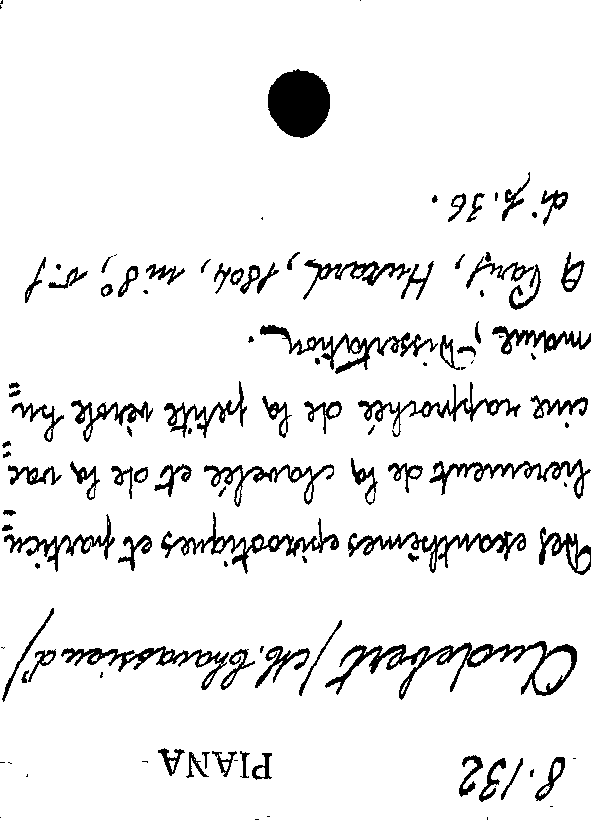 8.132 PIANA
Audebert (M. Chavassieud')
Des exanthèmes epizootiques et particu=
lierement de la clavelée et de la vac=
cine rapprochée de la petite vèrole hu=
maine, Dissertation.
A Paris, Huzard, 1804, in 8°, v.1
di p. 36.